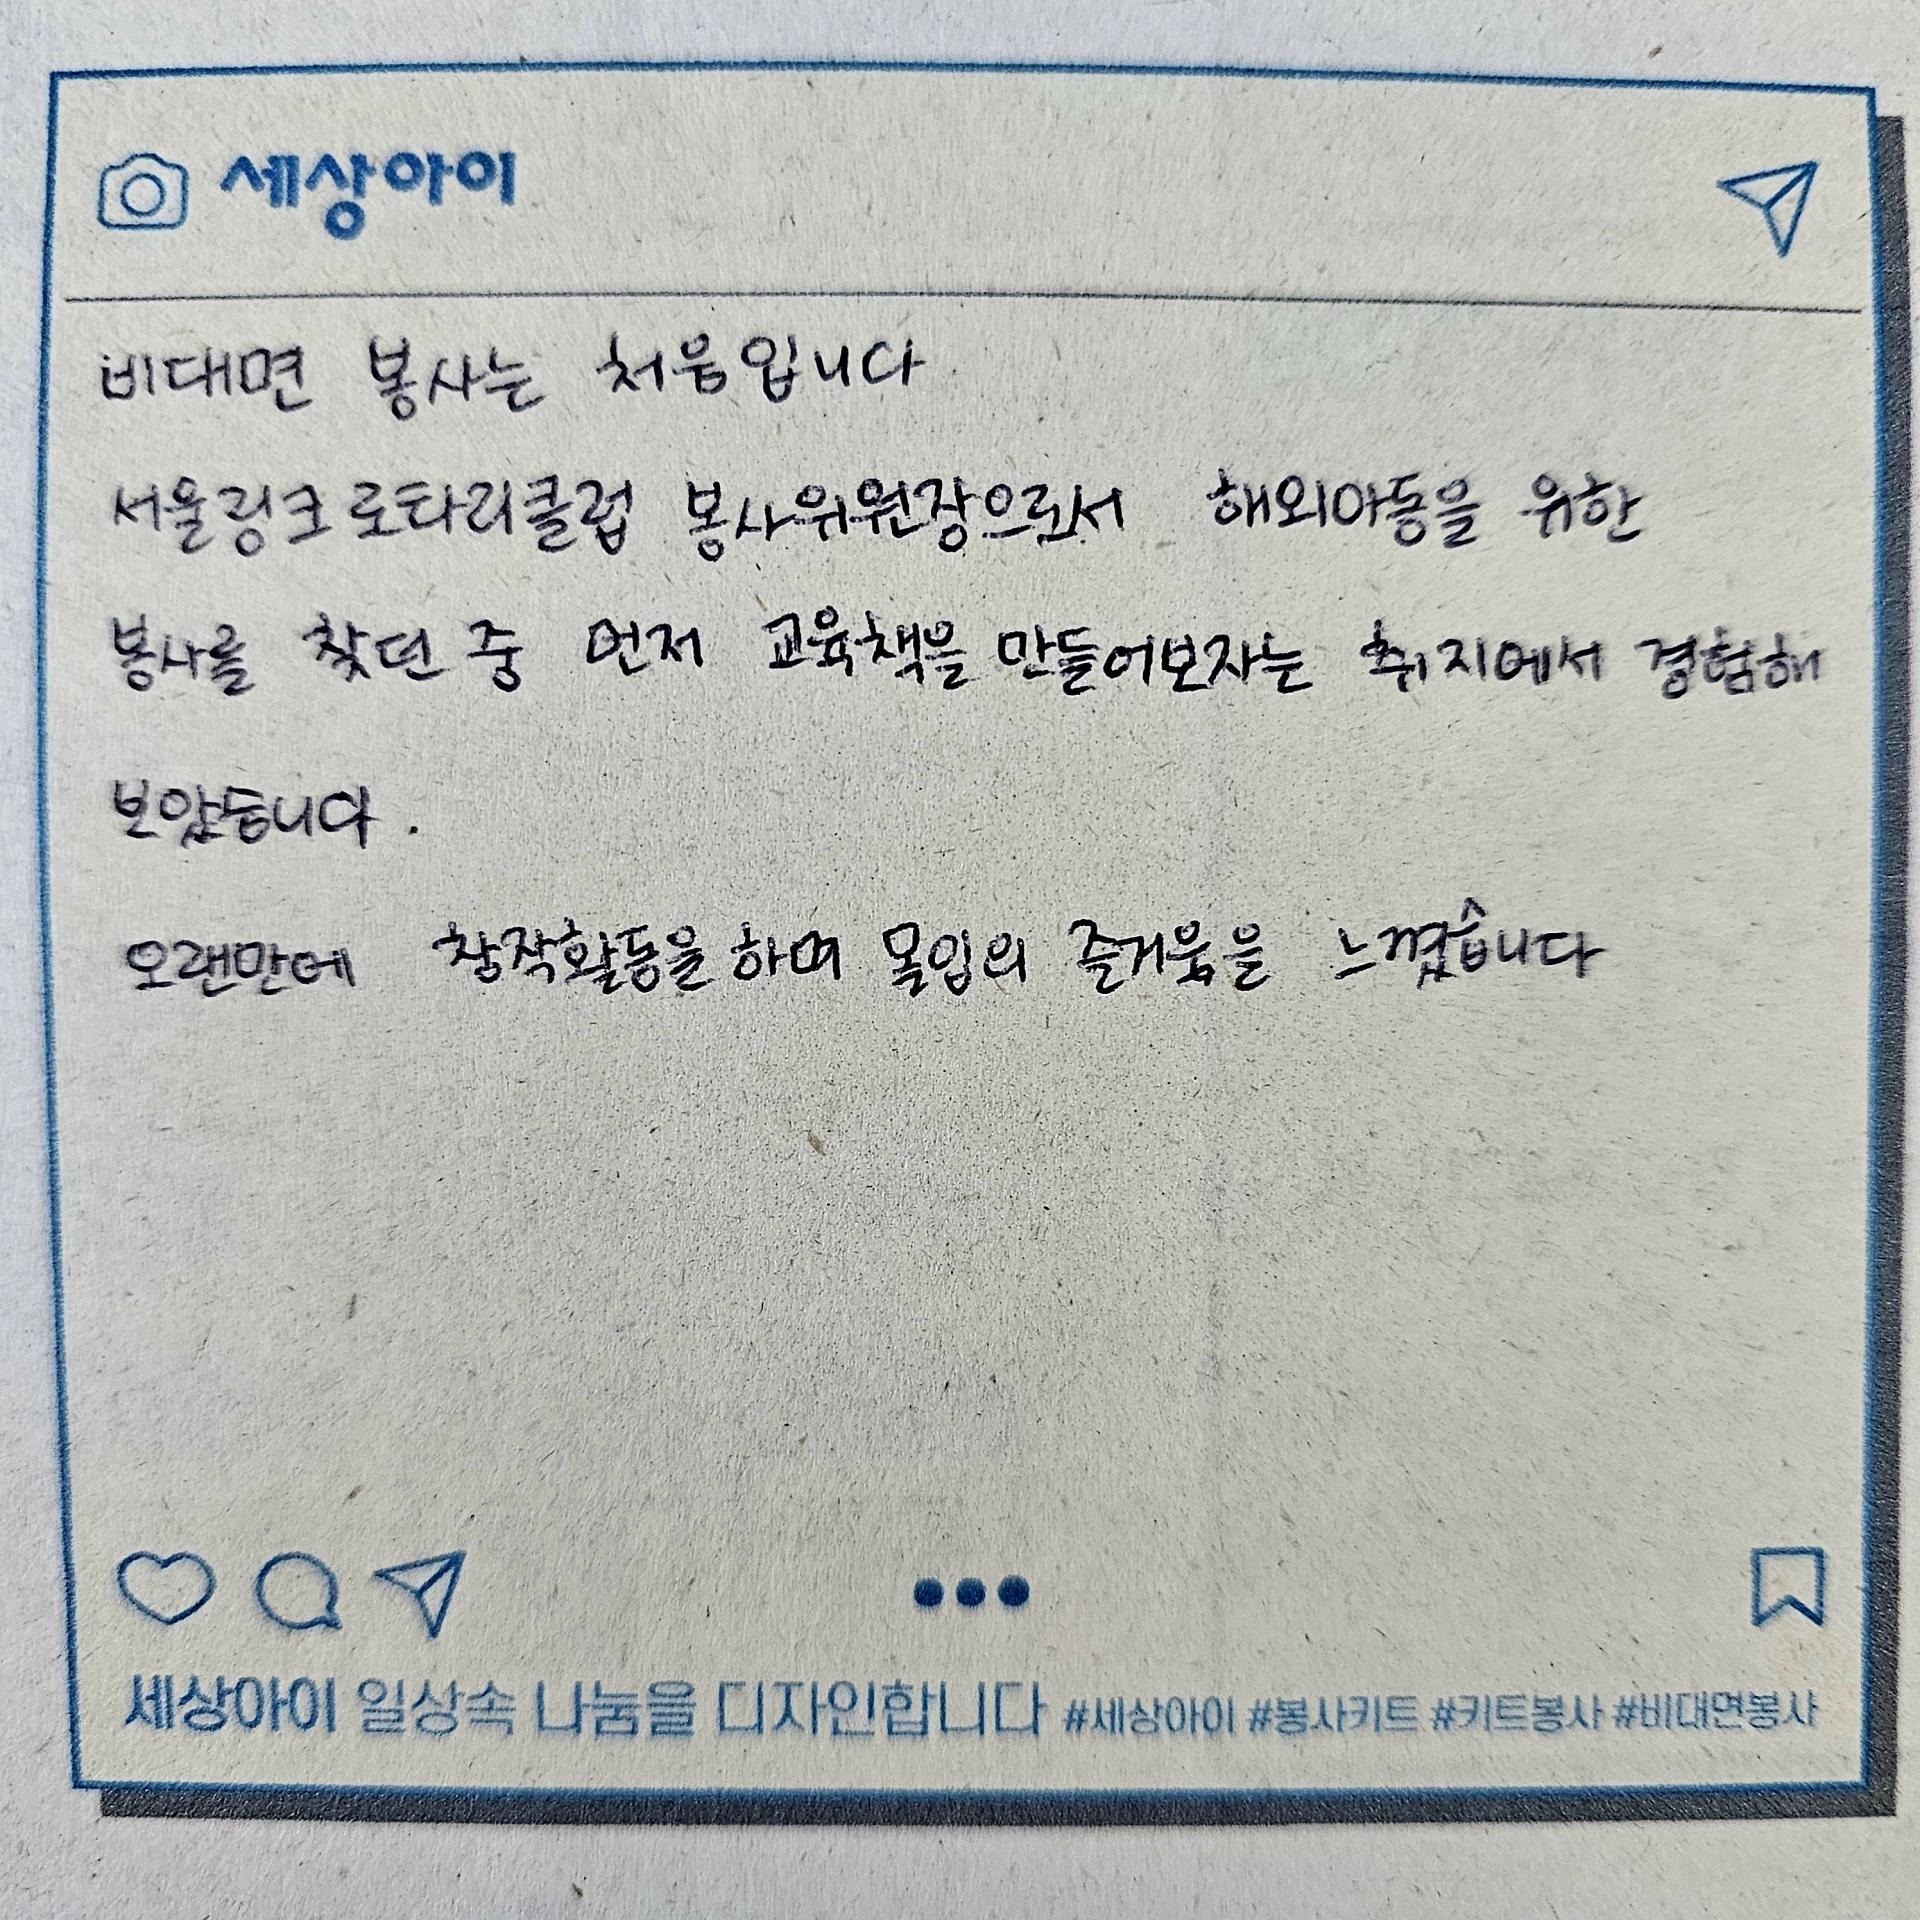 세상아이
비대면 봉사는 처음입니다
서울링크로타리클럽 봉사위원장으로서 해외아동을 위한
봉사를 찾던 중 먼저 교육책을 만들어보자는 취지에서 경험해
보았습니다.
오랜만에 창작활동을 하며 몰입의 즐거움을 느꼈습니다
세상아이 일상속 나눔을 디자인합니다 #세상아이 #봉사키트 #키트봉사 #비대면봉사